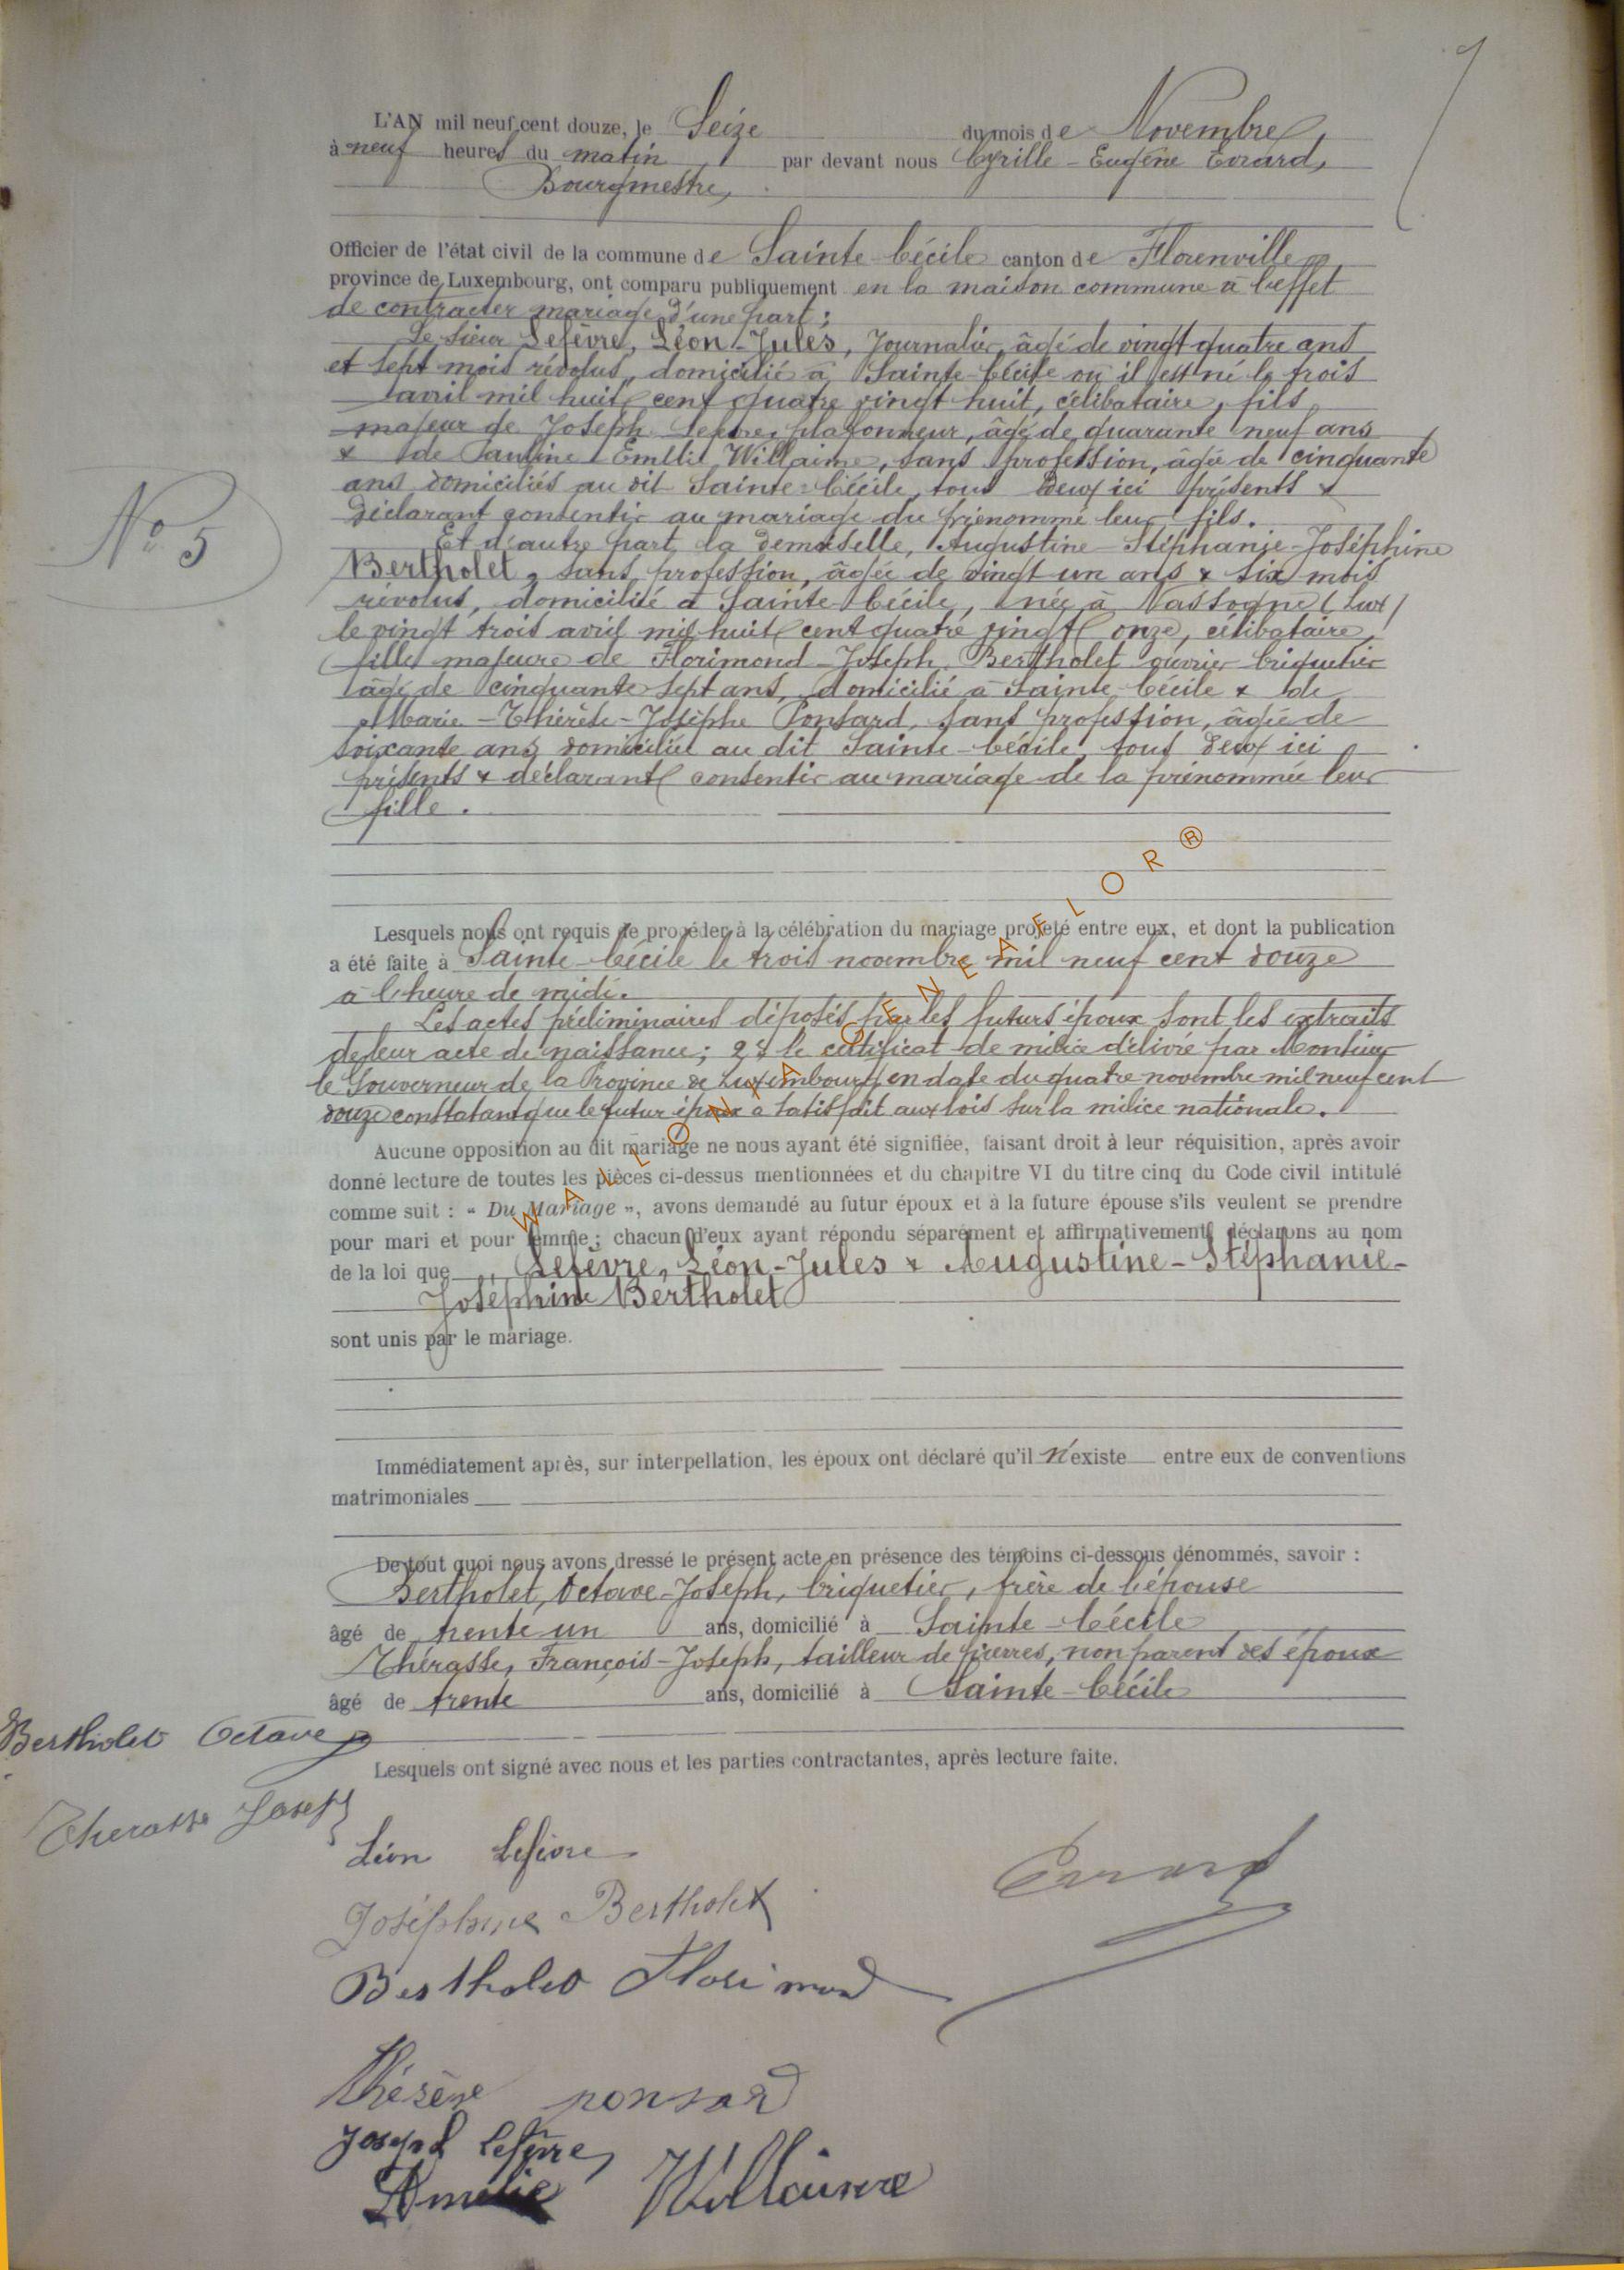 L'AN mil neuf cent douze, le Seize du mois de Novembre,
à neuf heures du matin par devant nous Cyrille-Eugène Evrard,
Bourgmestre,
Officier de l'état civil de la commune de Sainte-Cécile canton de Florenville
province de Luxembourg, ont comparu publiquement en la maison commune à l'effet
de contracter mariage d'une part ;
Le sieur Lefèvre, Léon-Jules, Journalier, âgé de vingt quatre ans
et sept mois révolus, domicilié à Sainte-Cécile où il est né le trois
avril mil huit cent quatre vingt huit, célibataire, fils
majeur de Joseph Lefèvre, plafonneur, âgé de quarante neuf ans
& de Pauline Emélie Willaime, sans profession, âgée de cinquante
ans domiciliés au dit Sainte-Cécile, tous deux ici présents &
déclarant consentir au mariage du prénommé leur fils.
Et d'autre part la demoiselle, Augustine-Stéphanie-Joséphine
Bertholet, sans profession, âgée de vingt un ans & six mois
révolus, domiciliée à Sainte-Cécile, née à Nassogne (Lux)
le vingt trois avril mil huit cent quatre vingt onze, célibataire,
fille majeure de Florimond-Joseph Bertholet ouvrier briquetier
âgé de cinquante sept ans, domicilié à Sainte-Cécile & de
Marie-Thérèse-Josèphe Ponsard, sans profession, âgée de
soixante ans domiciliée au dit Sainte-Cécile, tous deux ici
présents & déclarant consentir au mariage de la prénommée leur
fille.
Lesquels nous ont requis de procéder à la célébration du mariage projeté entre eux, et dont la publication
a été faite à Sainte-Cécile le trois novembre mil neuf cent douze
à l'heure de midi.
Les actes préliminaires déposés par les futurs époux sont les extraits
de leur acte de naissance ; 2° le certificat de milice délivré par Monsieur
le Gouverneur de la Province de Luxembourg en date du quatre novembre mil neuf cent
douze constatant que le futur époux a satisfait aux lois sur la milice nationale.
Aucune opposition au dit mariage ne nous ayant été signifiée, faisant droit à leur réquisition, après avoir
donné lecture de toutes les pièces ci-dessus mentionnées et du chapitre VI du titre cinq du Code civil intitulé
comme suit : « Du Mariage », avons demandé au futur époux et à la future épouse s'ils veulent se prendre
pour mari et pour femme ; chacun d'eux ayant répondu séparément et affirmativement, déclarons au nom
de la loi que Lefèvre, Léon-Jules & Augustine-Stéphanie-
Joséphine Bertholet
sont unis par le mariage.
Immédiatement après, sur interpellation, les époux ont déclaré qu'il n'existe entre eux de conventions
matrimoniales
De tout quoi nous avons dressé le présent acte en présence des témoins ci-dessous dénommés, savoir :
Bertholet, Octave-Joseph, briquetier, frère de l'épouse
âgé de trente un ans, domicilié à Sainte-Cécile
Thérasse, François-Joseph, tailleur de pierres, non parent des époux
âgé de trente ans, domicilié à Sainte-Cécile
Lesquels ont signé avec nous et les parties contractantes, après lecture faite.
N° 5
Bertholet Octave
Therasse Joseph
Léon Lefèvre
Evrard
Joséphine Bertholet
Bertholet Florimond
thérèse ponsard
Joseph Lefèvre
Amélie Willaime
WALLONIA GENEAFLOR ®